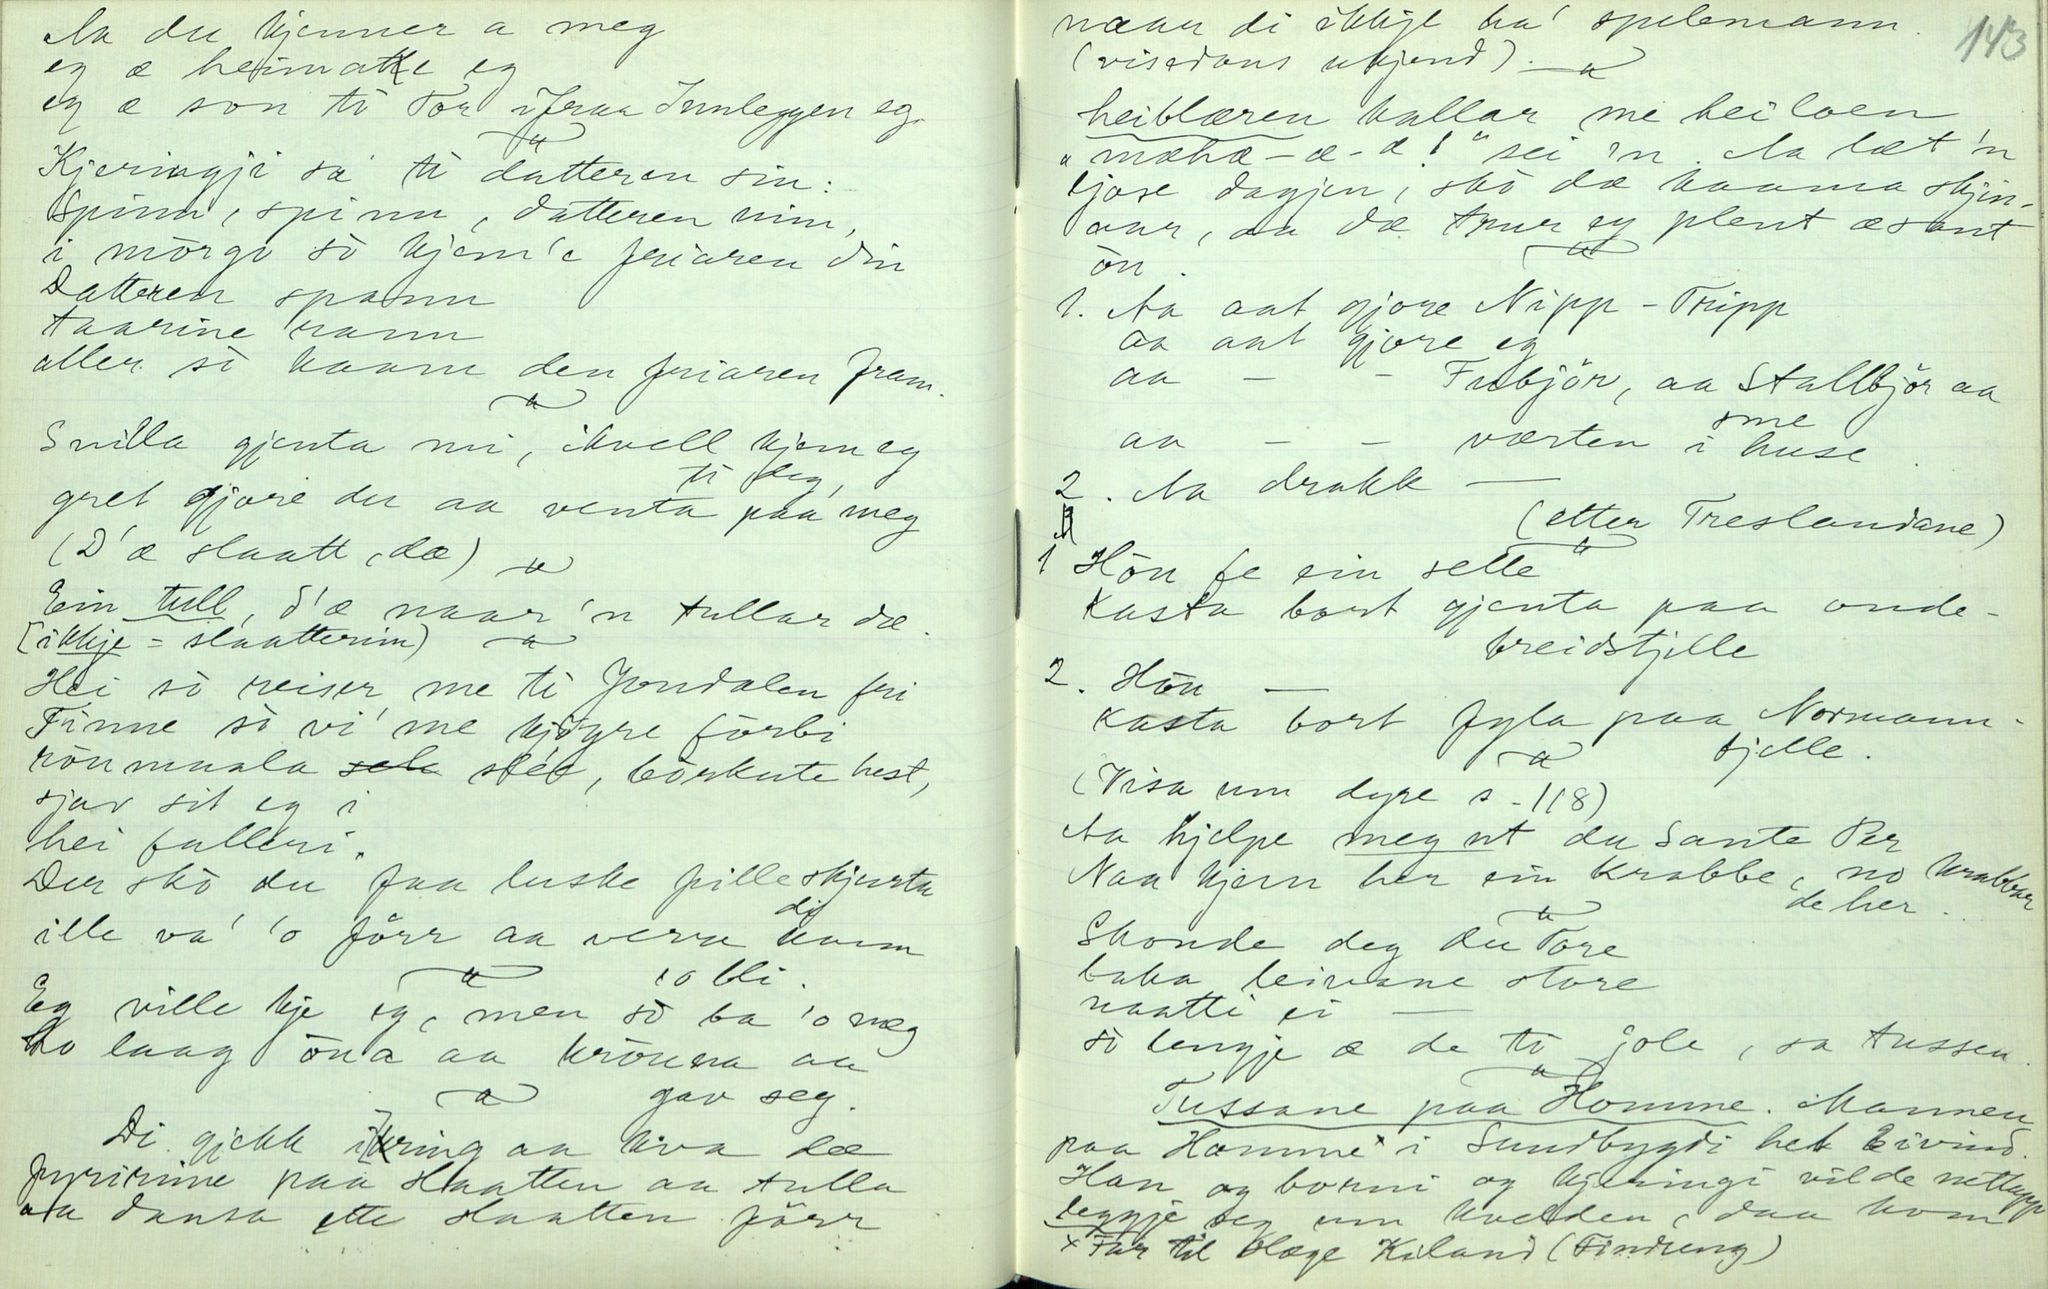 Aa du kjenner a meg
eg æ heimatte eg
eg æ son ti Tor ifraa Innleggen eg.
Kjeringji sa' ti datteren sin:
Spinn, spinn, datteren min,
i mórgó só kjem'e friaren din
Datteren spann
taarine rann
aller só kaam den friaren fram.
Snilla gjenta mi, ikvell kjem eg
ti deg,
gret gjore du aa venta paa meg
(D'æ slaatt, dæ)
Ein tull, d'æ naar'n tullar dæ.
(ikkje = slaatterim)
Hei só reiser me ti Jondalen fri
Finne só vi' me kjøyre fórbi
rónmaala slee, bórkute hest,
sjav sit eg i
hei falleri.
Der skó du faa luske fille skjurta
di
ille va' 'o fórr aa verre kann
'o bli.
Eg ville kje eg, men só ba 'o meg
ho laag óna aa krónna aa
gav seg.
Di gjekk ikring aa kva dæ
fyririme paa slaatten aa tulla
aa dansa ette slaatten fórr
143
naar di ikkje ha' spelemann.
(visedans ukjend).
heiblæren kallar me heiloen
"mæhæ-æ-æ!" sei 'n. Aa læt 'n
ljose dagjen, skó dæ kaama skjin-
aar, aa dæ trur eg plent æ sant
ón.
1. Aa aat gjore Nipp-Tripp
aa aat gjore eg
aa - - Fubjór, aa Stallbjór aa
aa - - værten i huse
sme
2. Aa drakk —
(etter Treslandane)
1 Hón fe ein selle
Kasta bort gjenta paa onde-
breidstjille
2. Hón —
Kasta bort fyla paa Normann-
fjelle.
(Visa um dyre s. 118)
Aa hjelpe meg ut du Sante Per
Naa kjem her ein krabbe, no krabbar
de her.
Skonde deg du Tore
baka leivane store
naatti ei —
só lengje æ de ti jole, sa tussen.
Tussane paa Homme. Mannen
paa Homme x i Sundbygdi het Eivind.
Han og borni og kjeringi vilde nettupp
leggje seg um kvelden, daa kom
x Far til Hæge Kiland (Findreng)